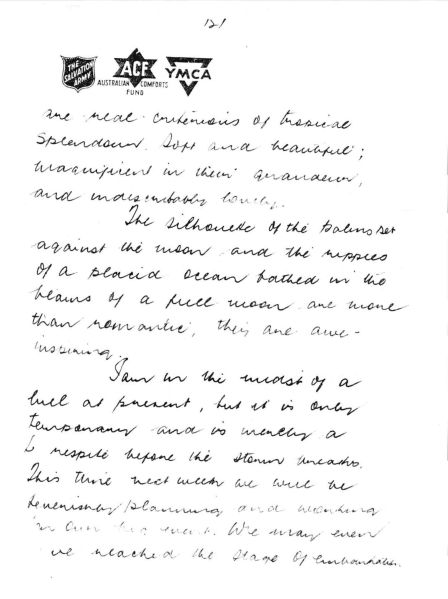 12/
THE SALVATION ARMY
ACF
AUSTRALIAN COMFORTS FUND
YMCA
are real criterions of tropical
splendour. Soft and beautiful;
magnificent in their grandeur,
and indescribably lovely.
The silhouette of the palms set
against the moon and the ripples
of a placid ocean bathed in the
beams of a full moon are more
than romantic, they are awe-
inspiring.
I am in the midst of a
lull at present, but it is only
temporary and is merely a
respite before the storm breaks.
This time next week we will be
feverishly planning and working
on our big event. We may even
've reached the stage of embarkation.